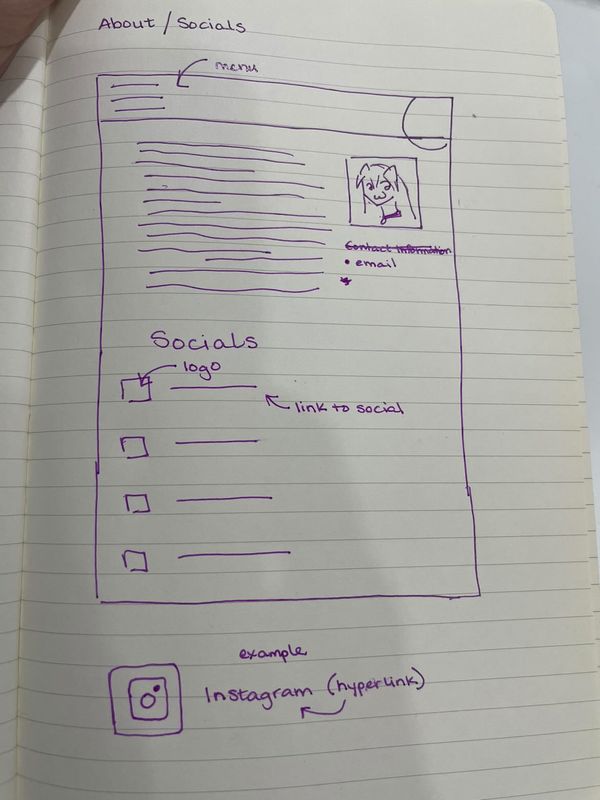 About / Socials
menu
Contact Information
• email
Socials
logo
link to social
example
Instagram (hyperlink)